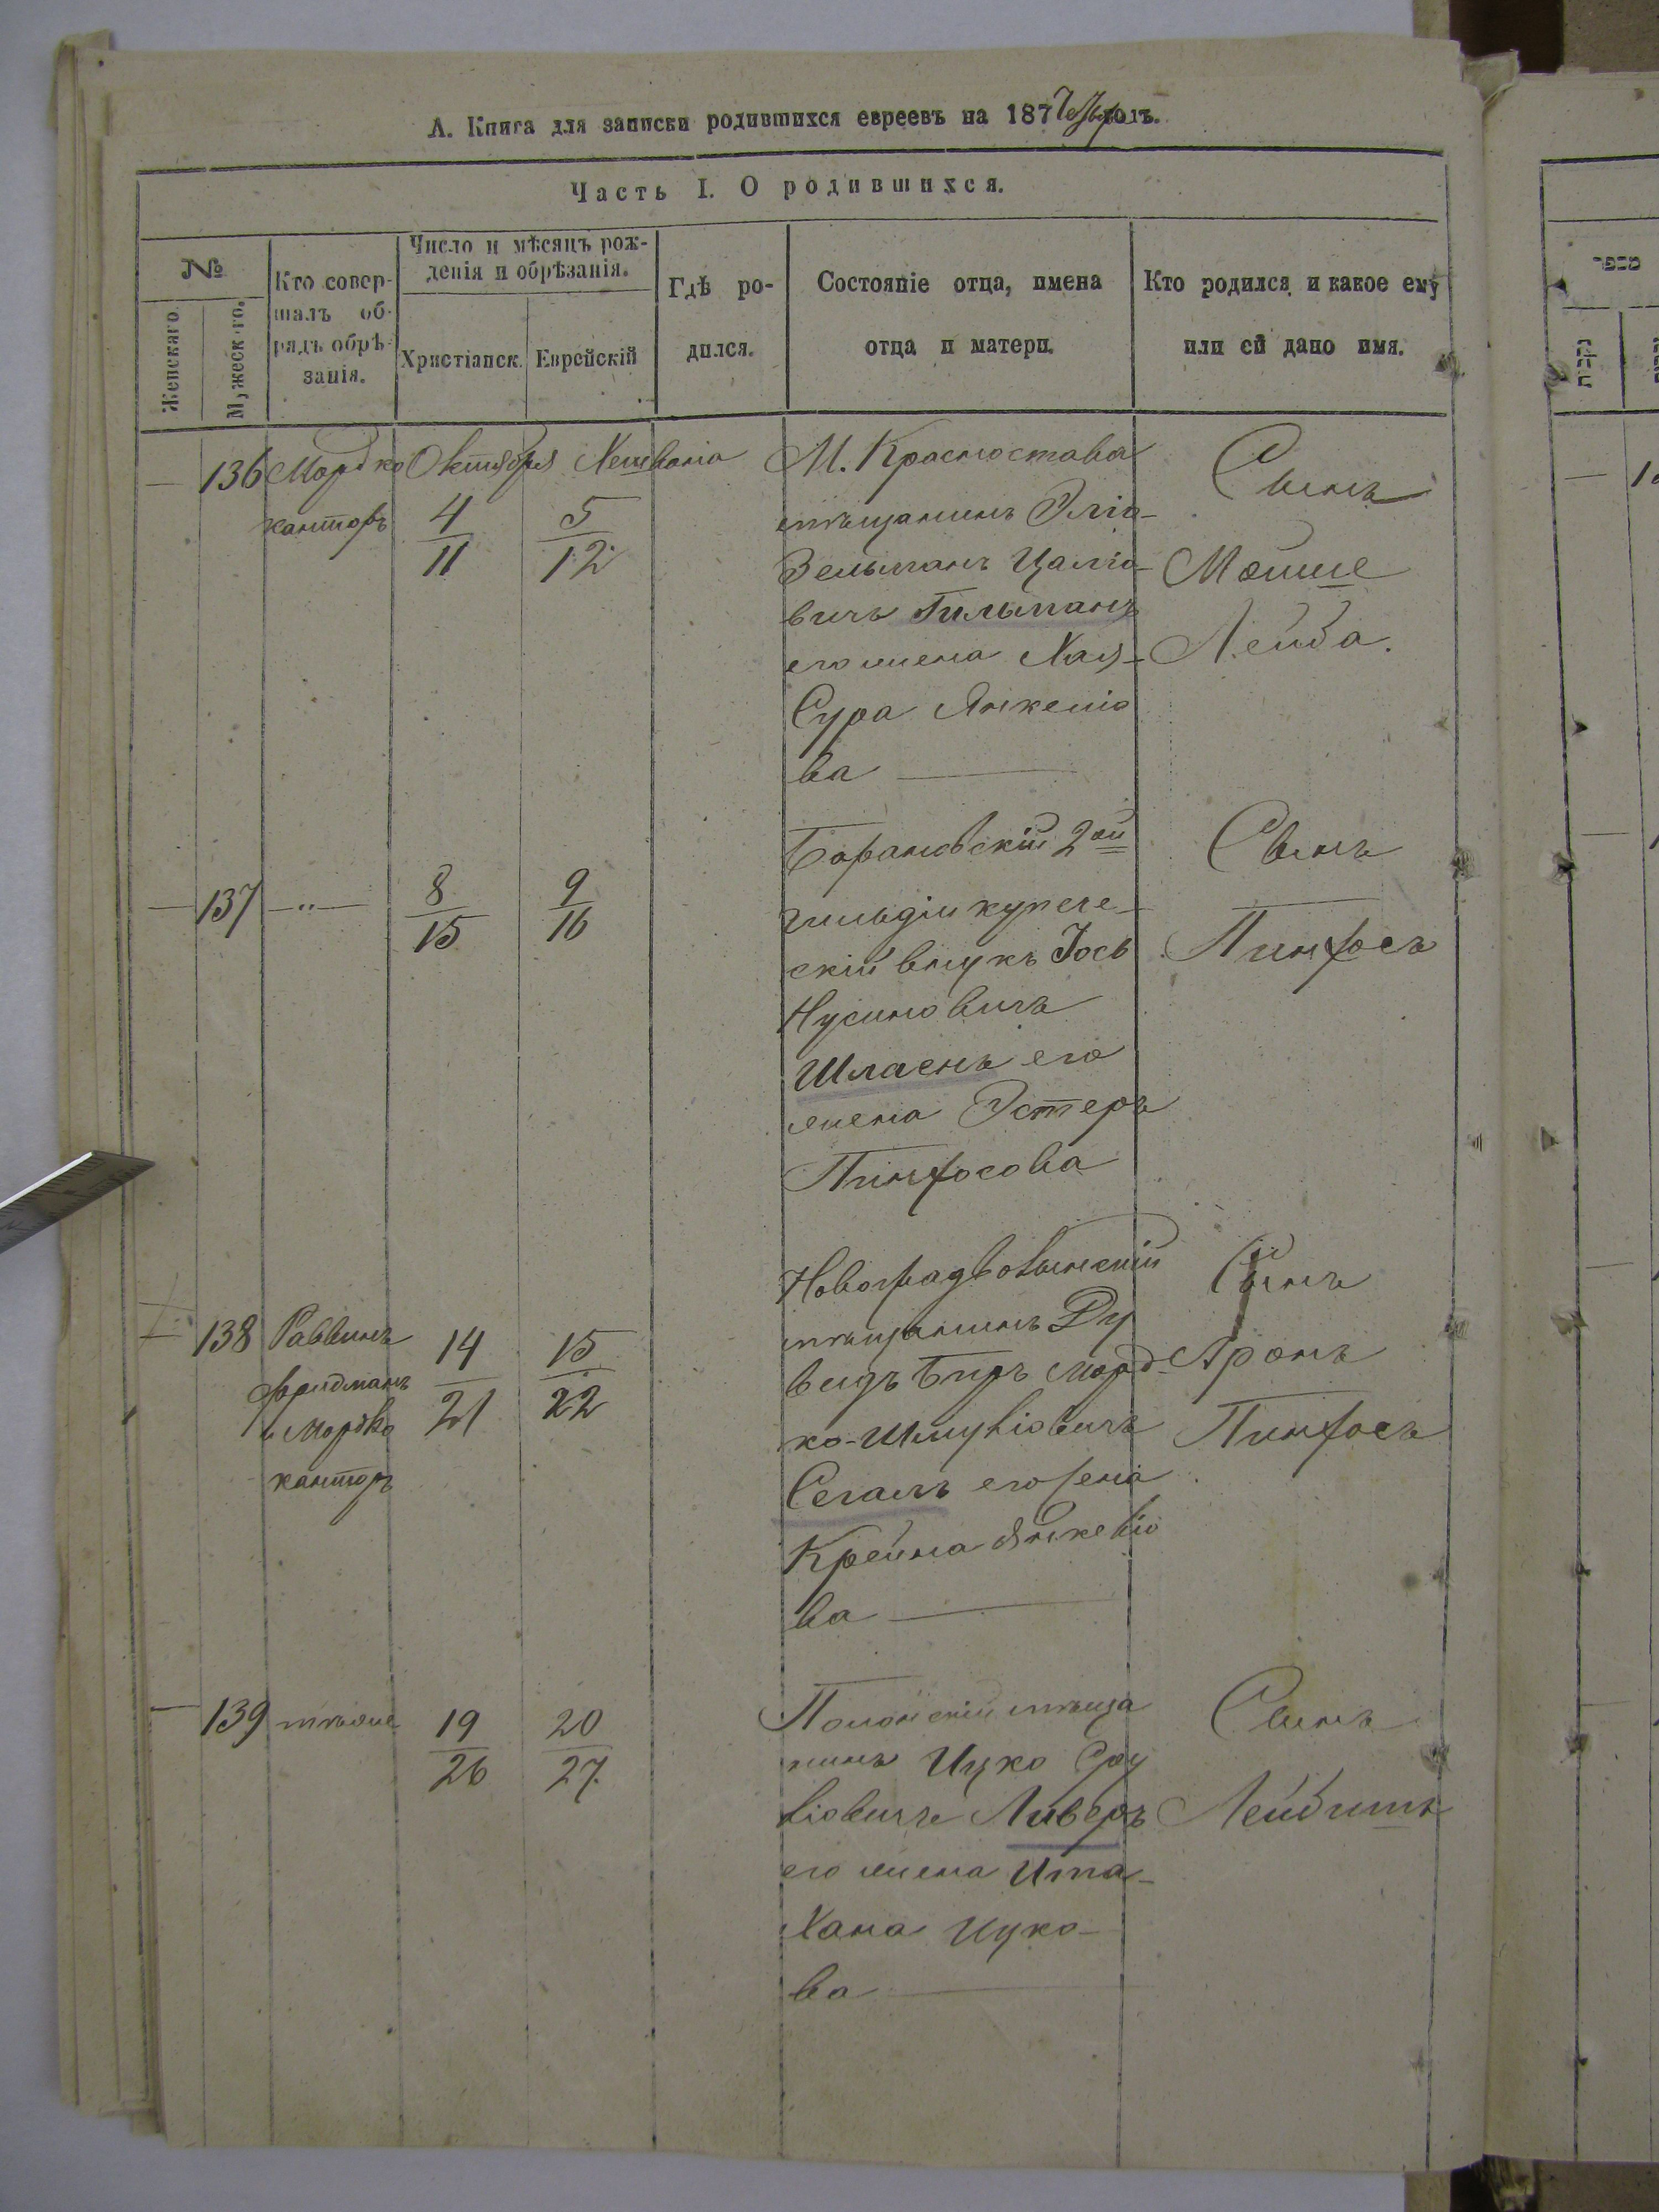 А. Книга для записки родившихся евреевъ на 187 годъ.
Часть I. О родившихся.
№
Женскаго.
Мужеск-го.
Кто совер-
шалъ об-
рядъ обрѣ-
занія.
Число и мѣсяцъ рож-
денія и обрѣзанія.
Христіанск.
Еврейскій
Гдѣ ро-
дился.
Состояніе отца, имена
отца и матери.
Кто родился и какое ему
или ей дано имя.
136 Мордко Октября Хешвана
канторъ
4
11
5
12
М. Красностава
мѣщанинъ Эліо-
Зельманъ Цаліо-
вичъ Гильманъ
его жена Хая-
Сура Янкеліо
ва
Сынъ
Мошше
Лейба.
137 —„—
8
15
9
16
Барановскій 2ой
гильдіи купече-
скій внукъ Іось
Нусиновичъ
Шлаенъ его
жена Эстеръ
Пинхосова
Сынъ
Пинхосъ
138 Раввинъ
Фридманъ
и Мордко
канторъ
14
21
15
22
Новоградволынскій
мѣщанинъ Ду
видъ Беръ Морд-
ко-Шмуліовичъ
Сегалъ его жена
Крейна Янкеліо
ва
Сынъ
Аронъ
Пинхосъ
139 тѣже
19
26
20
27.
Полонскій мѣща
нинъ Ицко Сру
ліовичъ Ливеръ
его жена Ита-
Хана Ицко-
ва
Сынъ
Лейбишъ
מספר
נקבות